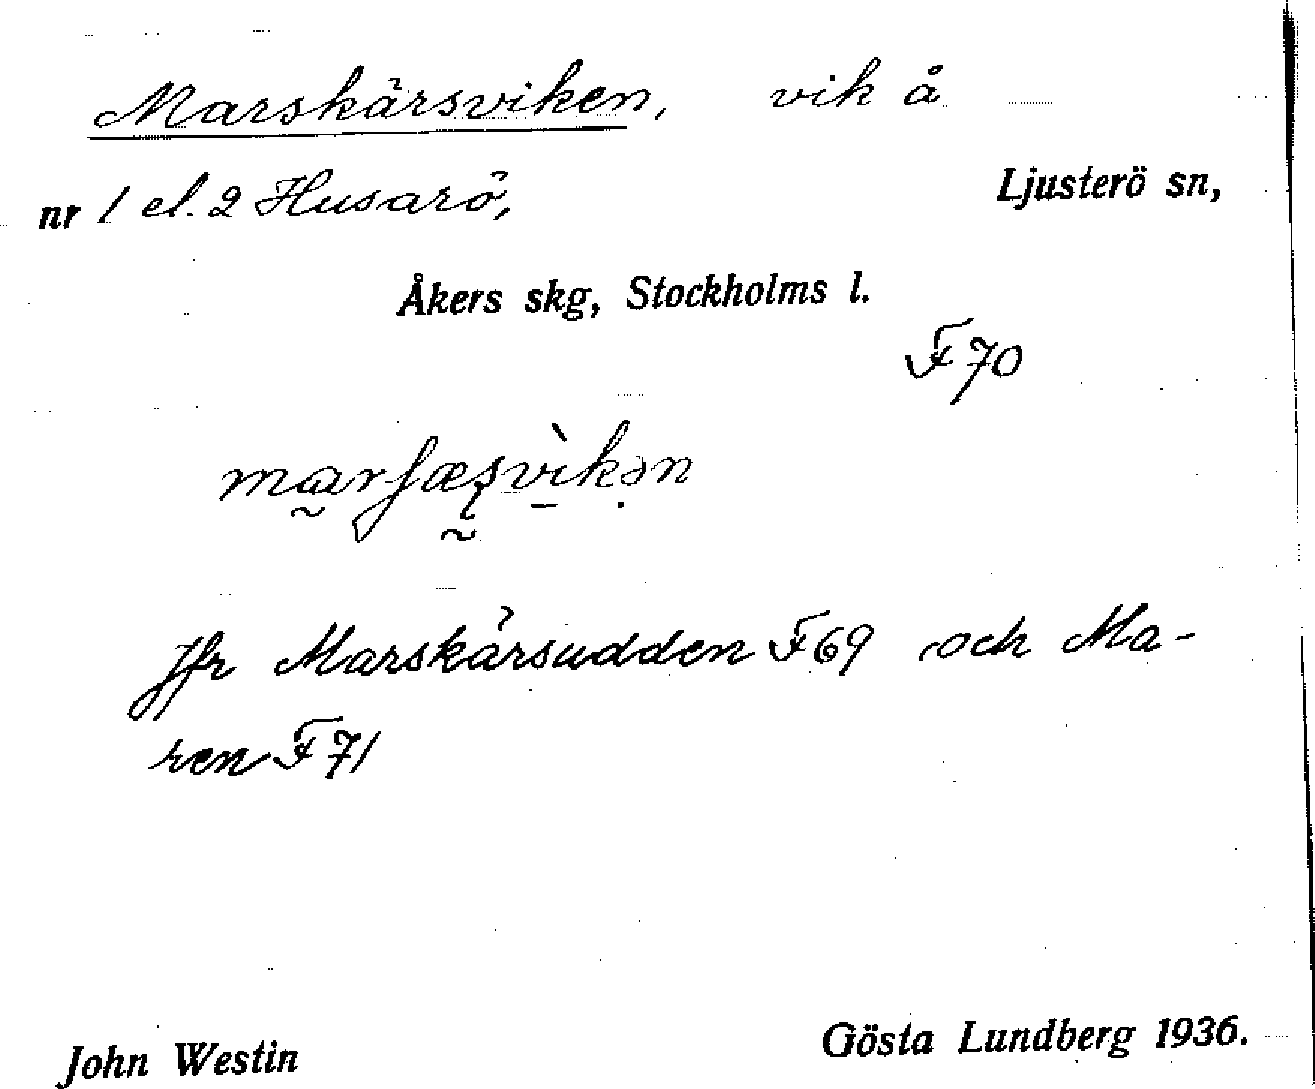 Marskärsviken, vik å
nr 1 el. 2 Husarö, Ljusterö sn,
Åkers skg, Stockholms l.
F 70
Jfr Marskärsudden F 69 och Ma-
ren F 71
John Westin Gösta Lundberg 1936.